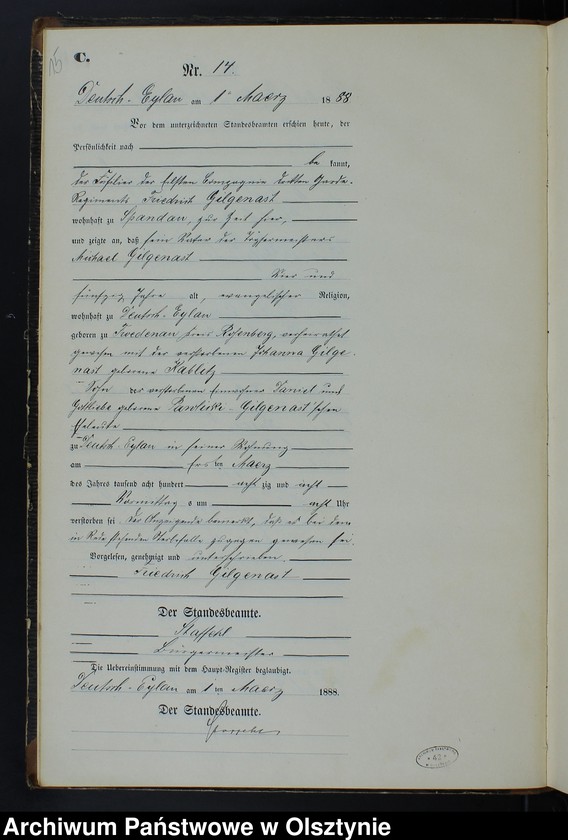 15
C.
Nr. 14.
Deutsch-Eylau am 1ten Maerz 1888
Vor dem unterzeichneten Standesbeamten erschien heute, der
Persönlichkeit nach
be kannt,
der Füsilier der elften Compagnie dritten Garde-
Regiments Friedrich Gilgenast
wohnhaft zu Spandau, zur Zeit hier,
und zeigte an, daß sein Vater der Töpfermeister
Michael Gilgenast
Vier und
fünfzig Jahre alt, evangelischer Religion,
wohnhaft zu Deutsch-Eylau
geboren zu Kreis Rosenberg, verheirathet
gewesen mit der verstorbenen Johanna Gilge-
nast geborene Kablitz
Sohn der verstorbenen Einwohner Daniel und
Gottliebe geborene Gilgenast'schen
Eheleute
zu Deutsch-Eylau in seiner Wohnung
am ersten Maerz
des Jahres tausend acht hundert acht zig und acht
Vormittags um acht Uhr
verstorben sei. Der Anzeigende bemerkt, daß er bei dem
in Rede stehenden Sterbefalle zugegen gewesen sei.
Vorgelesen, genehmigt und unterschrieben.
Friedrich Gilgenast
Der Standesbeamte.
Staffehl
Bürgermeister
Die Uebereinstimmung mit dem Haupt-Register beglaubigt.
Deutsch-Eylau am 1ten Maerz 1888.
Der Standesbeamte.
Archiwum Państwowe w Olsztynie